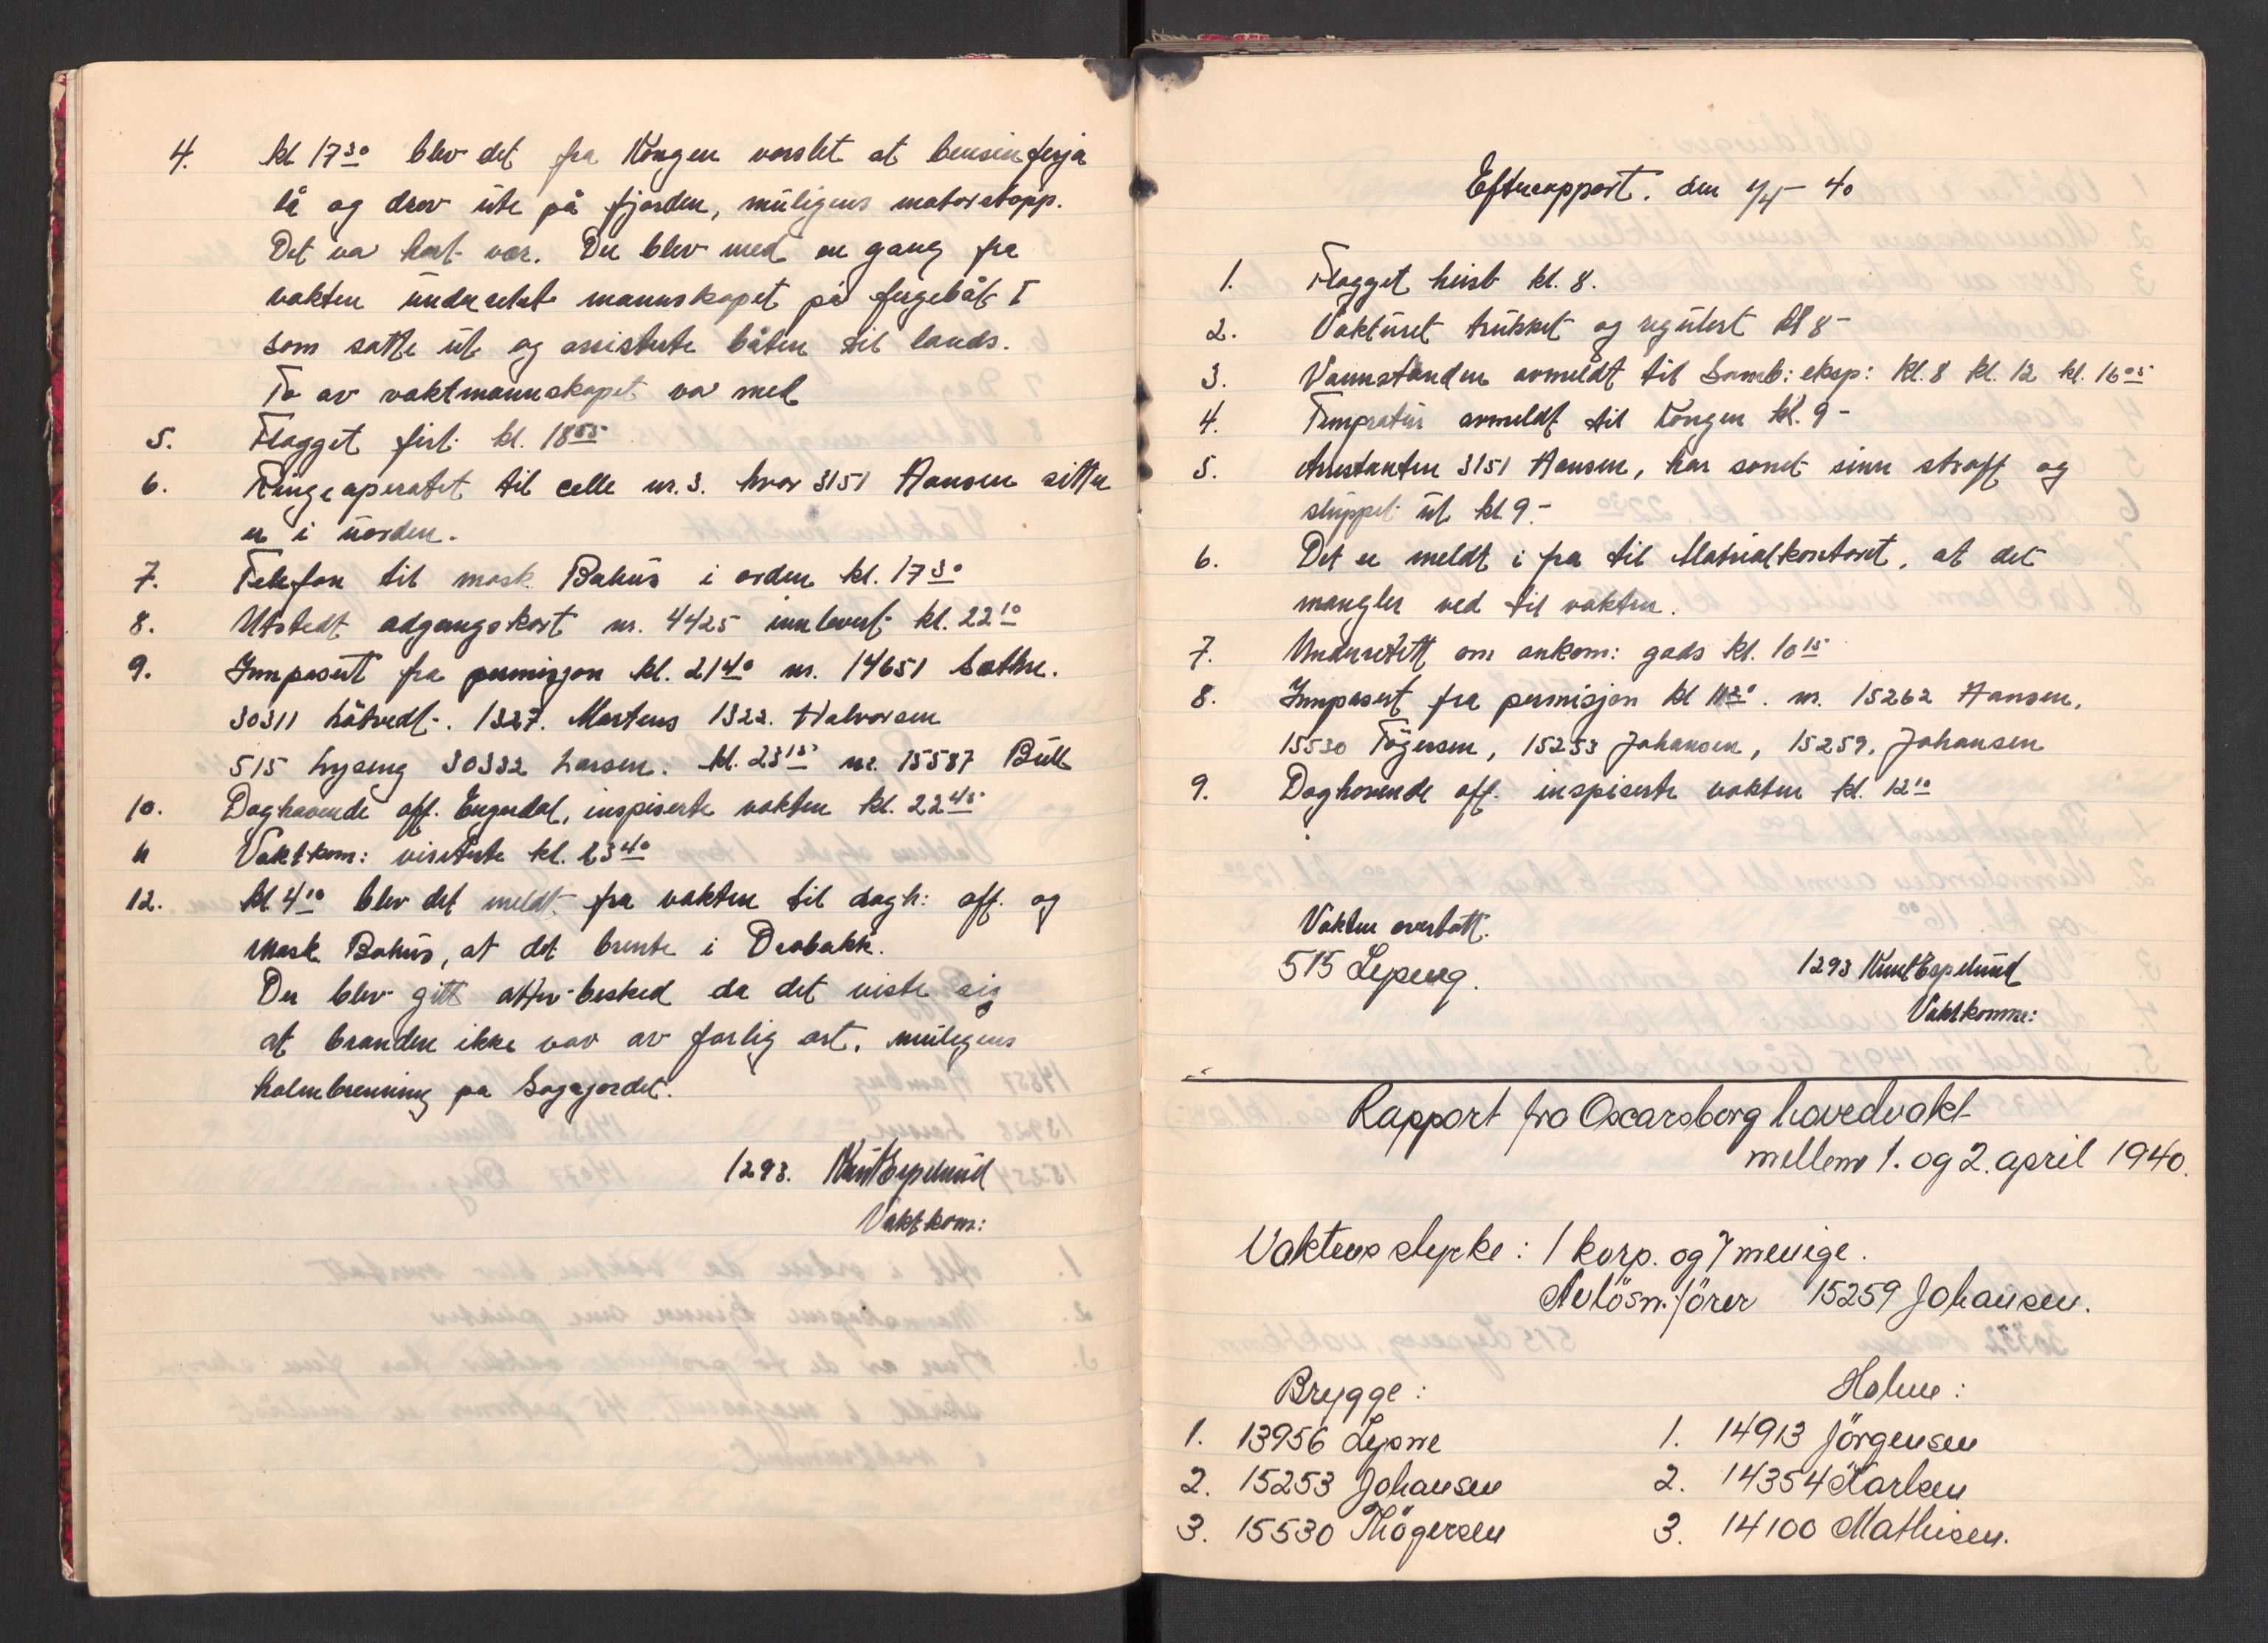 4. kl 17³⁰ blev det fra Kongen varslet at bensinferja
lå og drev ute på fjorden, muligens motorstopp.
Det va kort vær. Der blev med en gang fra
vakten underrettet mannskapet på fergebåt I
som satte ut og assisterte båten til lands.
To av vaktmannskapet va med
5. Flagget firt kl. 18⁵⁵
6. Ringeaperatet til celle nr. 3. hvor 3151 Hansen sitter
er i uorden.
7. Telefon til mask. Bakus i orden kl. 17³⁰
8. Utstedt adgangskort nr. 4425 innlevert kl. 22¹⁰
9. Innpasert fra permisjon kl. 21⁴⁰ nr. 14651 Sæthre.
30311 Låtvedt. 1327. Martens 1322. Halvorsen
515 Lyseng 30332 Larsen. kl. 23¹⁵ nr. 15587 Bull
10. Daghavende off. Engerdal, inspiserte vakten kl. 22⁴⁵
11 Vaktkom: visiterte kl. 23⁴⁰
12. kl 4¹⁰ blev det meldt fra vakten til dagh: off. og
Mask. Bakus, at det brente i Drøbakk.
Der blev gitt atter besked da det viste sig
at branden ikke var av farlig art, muligens
halmbrenning på Sagajordet.
1293. Knut Espelund
Vaktkom:
Efterrapport. den 1/4 - 40
1. Flagget heist kl. 8.
2. Vakturet trukket og regulert kl 8 -
3. Vannstanden avmeldt til Samb: eksp: kl. 8 kl. 12 kl. 16⁰⁵
4. Tempratur avmeldt til Kongen kl. 9 -
5. Arrestanten 3151 Hansen, har sonet sinn straff og
sluppet ut kl 9. -
6. Det er meldt i fra til Materialkontoret, at det
mangler ved til vakten.
7. Underrettet om ankom: gods kl. 10¹⁵
8. Innpasert fra permisjon kl 11³⁰. nr. 15262 Hansen,
15530 Tögersen, 15253 Johansen, 15259, Johansen
9. Daghavende off. inspiserte vakten kl. 12¹⁰
Vakten overtatt.
515 Lyseng. 1293 Knut Espelund
Vaktkomm:
Rapport fra Oscarsborg hovedvakt
mellem 1. og 2. april 1940.
Vaktens styrke: 1 korp. og 7 menige.
Avlösn. förer 15259 Johansen.
Brygge: Holme:
1. 13956 Lysne 1. 14913 Jörgensen
2. 15253 Johansen 2. 14354 Karlsen
3. 15530 Thögersen 3. 14100 Mathisen.